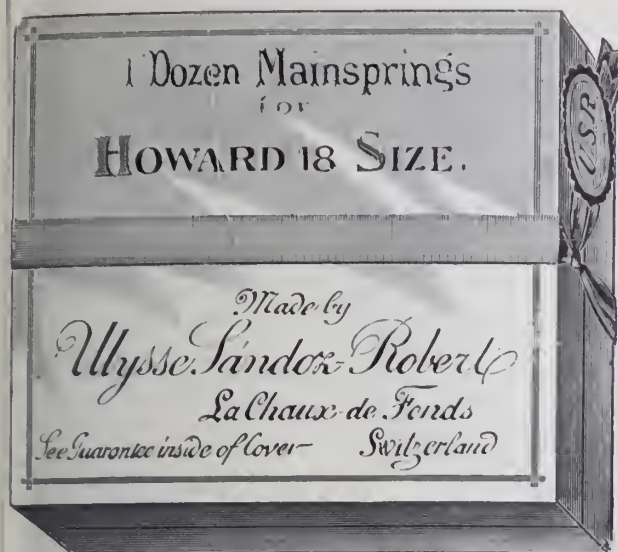 1 Dozen Mainsprings
for
HOWARD 18 SIZE.
U.S.R
Made by
Ulysse Sandoz-Robert
La Chaux-de-Fonds
See Guarantee inside of Cover—
Switzerland